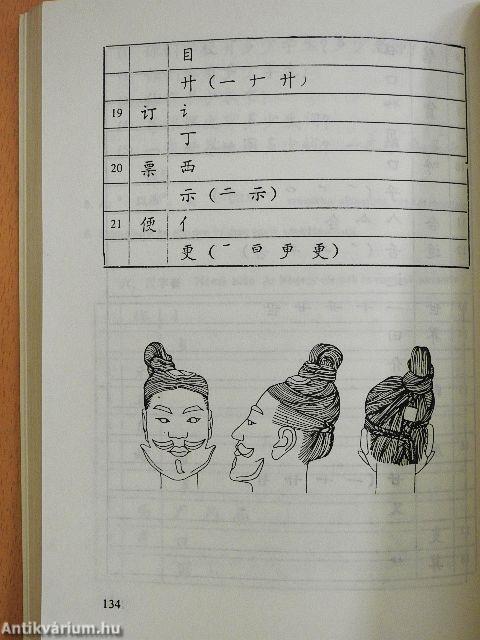 目
廾 (一 ナ 廾)
19 订 讠
丁
20 票 西
示 (二 示)
21 便 亻
更 (一 百 更 更)
134
Antikvárium.hu